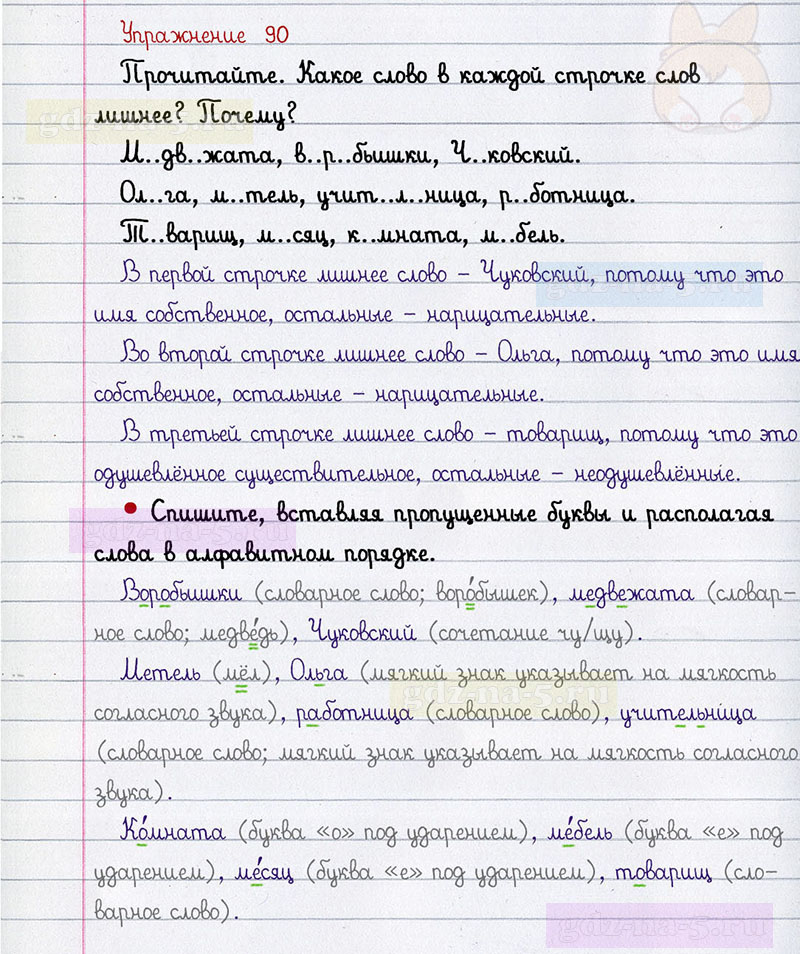 Упражнение 90
Прочитайте. Какое слово в каждой строчке слов
лишнее? Почему?
М..дв..жата, в..р..бышки, Ч..ковский.
Ол..га, м..тель, учит..л..ница, р..ботница.
Т..варищ, м..сяц, к..мната, м..бель.
В первой строчке лишнее слово – Чуковский, потому что это
имя собственное, остальные – нарицательные.
Во второй строчке лишнее слово – Ольга, потому что это имя
собственное, остальные – нарицательные.
В третьей строчке лишнее слово – товарищ, потому что это
одушевлённое существительное, остальные – неодушевлённые.
• Спишите, вставляя пропущенные буквы и располагая
слова в алфавитном порядке.
Воробышки (словарное слово; воро́бышек), медвежата (словар-
ное слово; медве́дь), Чуковский (сочетание чу/щу).
Метель (мёл), Ольга (мягкий знак указывает на мягкость
согласного звука), работница (словарное слово), учительница
(словарное слово; мягкий знак указывает на мягкость согласного
звука).
Ко́мната (буква «о» под ударением), ме́бель (буква «е» под
ударением), ме́сяц (буква «е» под ударением), товарищ (сло-
варное слово).
gdz-na-5.ru
gdz-na-5.ru
gdz-na-5.ru
gdz-na-5.ru
gdz-na-5.ru